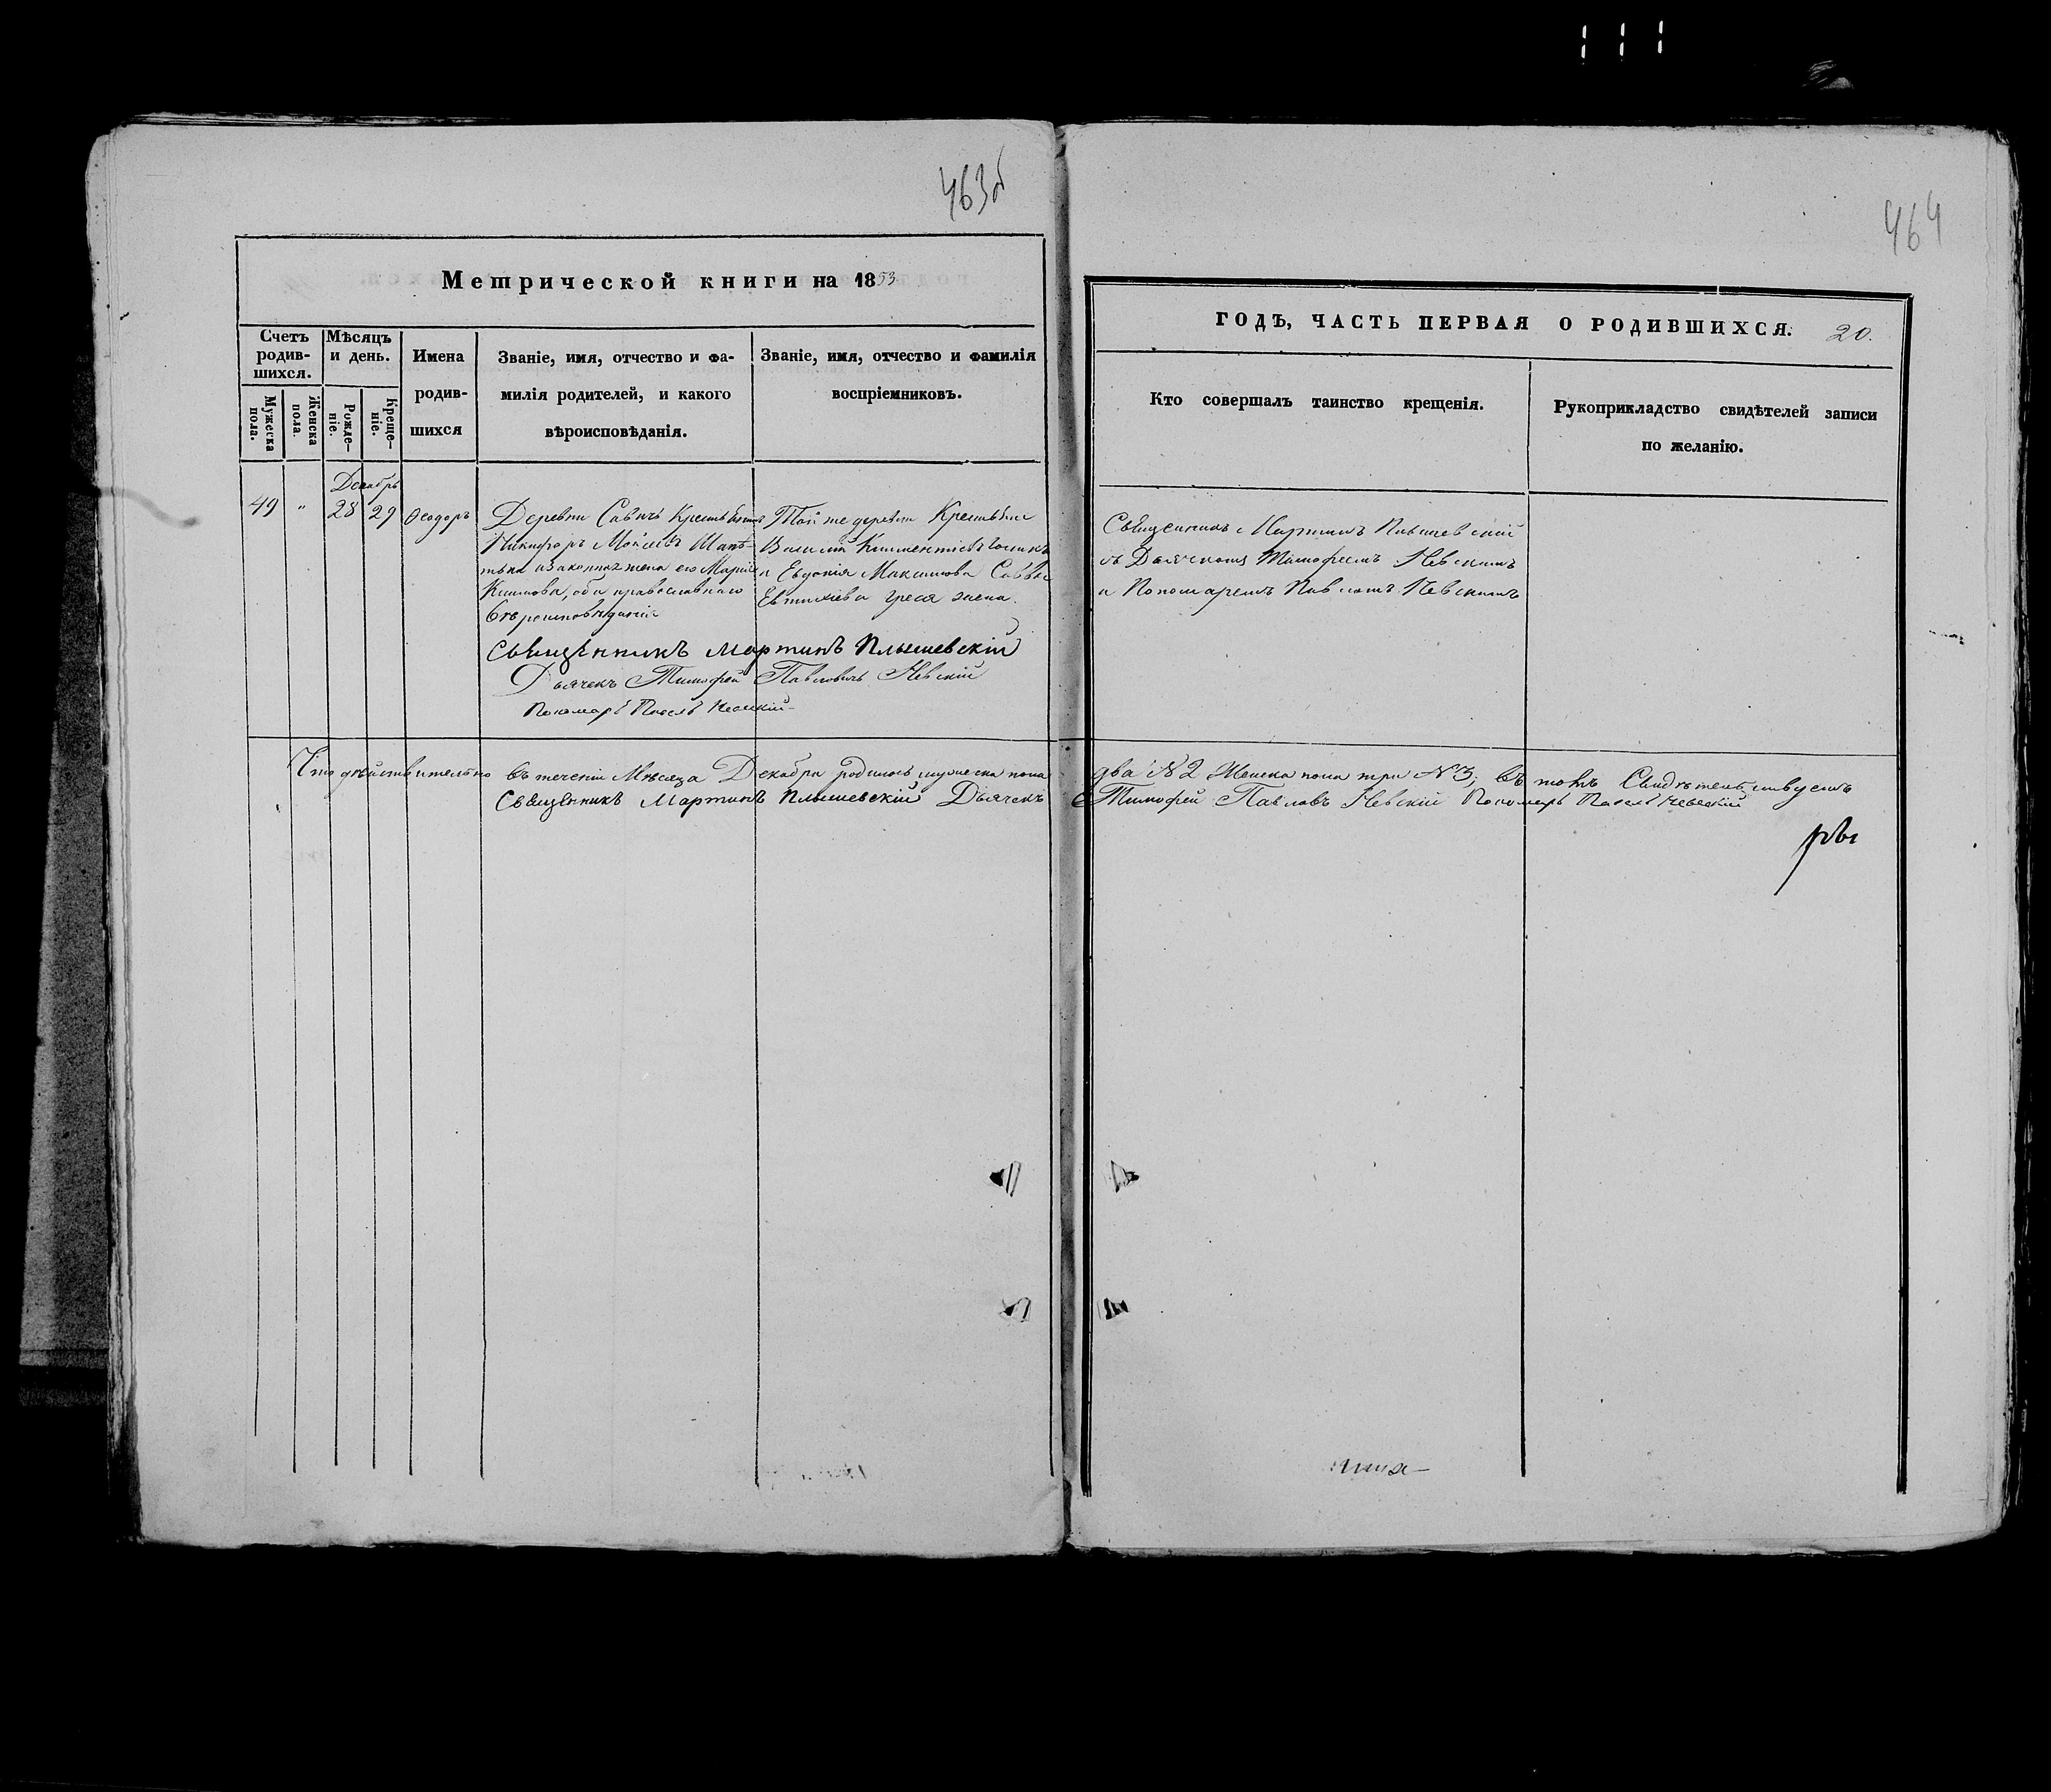 463об
464
Метрической книги на 1853
Счетъ родив-
шихся.
Мѣсяцъ
и день.
Имена
родив-
шихся
Званіе, имя, отчество и фа-
милія родителей, и какого
вѣроисповѣданія.
Званіе, имя, отчество и фамилія
воспріемниковъ.
Мужеска
пола.
Женска
пола.
Рожде-
ніе.
Креще-
ніе.
Декабрь
49 " 28 29 Ѳеодоръ
Деревни Савичъ Крестьянинъ
Никифоръ Моисѣевъ
и законная жена его Марія
Климова, оба православнаго
вѣроисповѣданія
Той же деревни Крестьяне
Василій Климентіевъ
и Евдокія Максимова Саввы
Евтихіева жена.
Священникъ Мартинъ Плышевскій
Дьячекъ Тимофей Павловичъ Невскій
Пономарь Павелъ Невскій
Что действительно въ теченіи Мѣсяца Декабря родилось мужеска пола
Священникъ Мартинъ Плышевскій Дьячекъ
ГОДЪ, ЧАСТЬ ПЕРВАЯ О РОДИВШИХСЯ. 20.
Кто совершалъ таинство крещенія.
Рукоприкладство свидѣтелей записи
по желанію.
Священникъ Мартинъ Плышевскій
съ Дьячкомъ Тимофеемъ Невскимъ
и Пономаремъ Павломъ Невскимъ
два №2 Женска пола три №3; въ томъ Свидѣтельствуемъ
Тимофей Павловъ Невскій Пономарь Павелъ Невскій